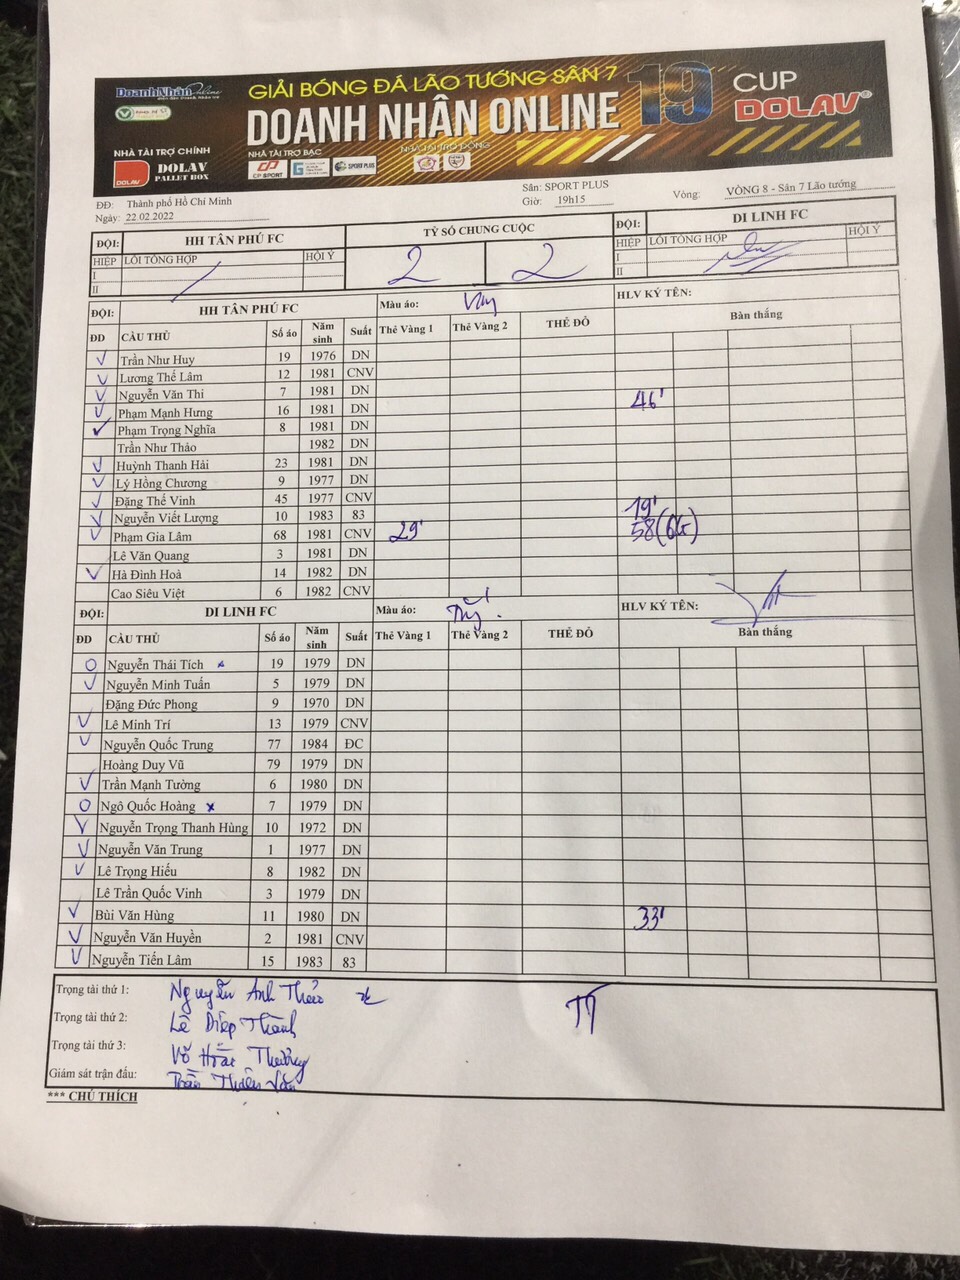 DoanhNhânOnline
GIẢI BÓNG ĐÁ LÃO TƯỚNG SÂN 7
DOANH NHÂN ONLINE 19
CUP
DOLAV®
NHÀ TÀI TRỢ CHÍNH
DOLAV
DOLAV
PALLET BOX
NHÀ TÀI TRỢ BẠC
CP SPORT
SPORT PLUS
NHÀ TÀI TRỢ ĐỒNG
ĐĐ: Thành phố Hồ Chí Minh Sân: SPORT PLUS Vòng: VÒNG 8 - Sân 7 Lão tướng
Ngày: 22.02.2022 Giờ: 19h15
ĐỘI: HH TÂN PHÚ FC TỶ SỐ CHUNG CUỘC ĐỘI: DI LINH FC
HIỆP LỖI TỔNG HỢP HỘI Ý 2 2 HIỆP LỖI TỔNG HỢP HỘI Ý
I I
II II
ĐỘI: HH TÂN PHÚ FC Màu áo: HLV KÝ TÊN:
ĐD CẦU THỦ Số áo Năm sinh Suất Thẻ Vàng 1 Thẻ Vàng 2 THẺ ĐỎ Bàn thắng
Trần Như Huy 19 1976 DN
Lương Thế Lâm 12 1981 CNV
Nguyễn Văn Thi 7 1981 DN 46'
Phạm Mạnh Hưng 16 1981 DN
Phạm Trọng Nghĩa 8 1981 DN
Trần Như Tháo 1982 DN
Huỳnh Thanh Hải 23 1981 DN
Lý Hồng Chương 9 1977 DN
Đặng Thế Vinh 45 1977 CNV
Nguyễn Viết Lượng 10 1983 83 19'
Phạm Gia Lâm 68 1981 CNV 29' 58
Lê Văn Quang 3 1981 DN
Hà Đình Hoà 14 1982 DN
Cao Siêu Việt 6 1982 CNV
ĐỘI: DI LINH FC Màu áo: HLV KÝ TÊN:
ĐD CẦU THỦ Số áo Năm sinh Suất Thẻ Vàng 1 Thẻ Vàng 2 THẺ ĐỎ Bàn thắng
Nguyễn Thái Tích 19 1979 DN
Nguyễn Minh Tuấn 5 1979 DN
Đặng Đức Phong 9 1970 DN
Lê Minh Trí 13 1979 CNV
Nguyễn Quốc Trung 77 1984 ĐC
Hoàng Duy Vũ 79 1979 DN
Trần Mạnh Tường 6 1980 DN
Ngô Quốc Hoàng 7 1979 DN
Nguyễn Trọng Thanh Hùng 10 1972 DN
Nguyễn Văn Trung 1 1977 DN
Lê Trọng Hiếu 8 1982 DN
Lê Trần Quốc Vinh 3 1979 DN
Bùi Văn Hùng 11 1980 DN 33'
Nguyễn Văn Huyền 2 1981 CNV
Nguyễn Tiến Lâm 15 1983 83
Trọng tài thứ 1: Nguyễn Anh
Trọng tài thứ 2: Lê Diệp Thành
Trọng tài thứ 3: Võ
Giám sát trận đấu: Trần
*** CHÚ THÍCH